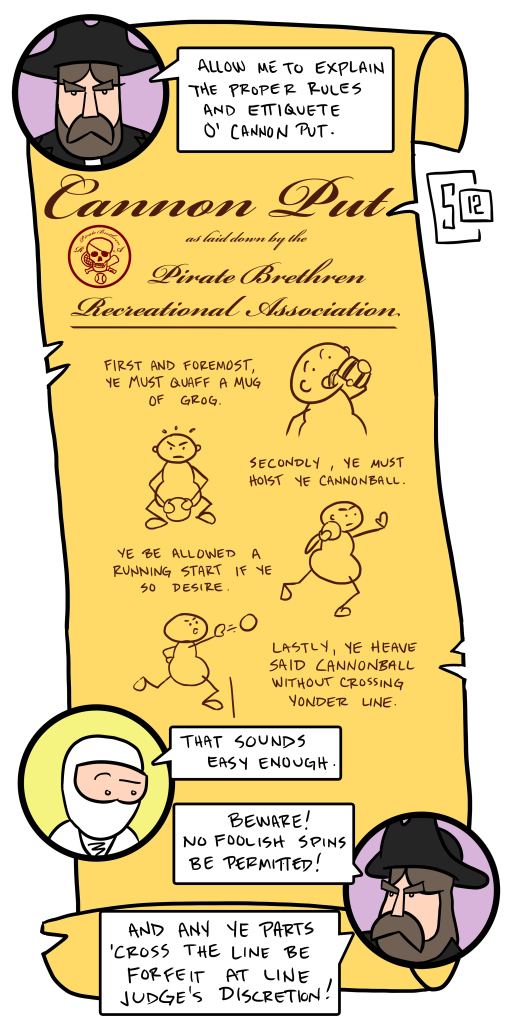 ALLOW ME TO EXPLAIN
THE PROPER RULES
AND ETTIQUETE
O' CANNON PUT.
Cannon Put
S
12
as laid down by the
Pirate Brethren
Pirate Brethren
R A
Recreational Association.
FIRST AND FOREMOST,
YE MUST QUAFF A MUG
OF GROG.
SECONDLY, YE MUST
HOIST YE CANNONBALL.
YE BE ALLOWED A
RUNNING START IF YE
SO DESIRE.
LASTLY, YE HEAVE
SAID CANNONBALL
WITHOUT CROSSING
YONDER LINE.
THAT SOUNDS
EASY ENOUGH.
BEWARE!
NO FOOLISH SPINS
BE PERMITTED!
AND ANY YE PARTS
'CROSS THE LINE BE
FORFEIT AT LINE
JUDGE'S DISCRETION!